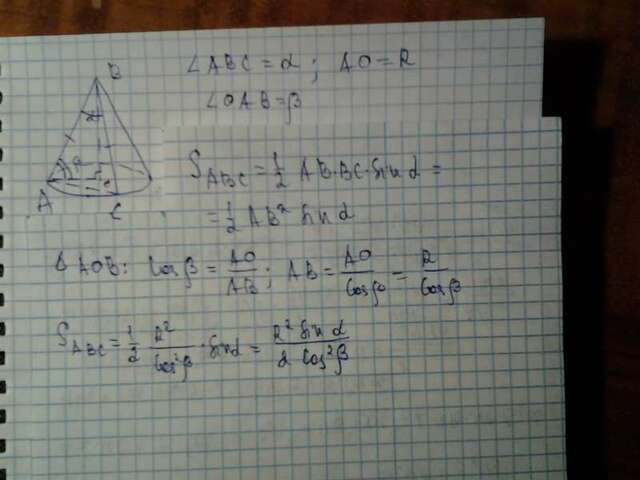 ∠ABC = α ; AO = R
∠OAB = β
B
α
β
O
A
C
S_ABC = 1/2 AB·BC·Sin α =
= 1/2 AB² Sin α
Δ AOB: Cos β = AO/AB ; AB = AO/Cos β = R/Cos β
S_ABC = 1/2 R²/Cos²β · Sin α = R² Sin α / 2 Cos²β